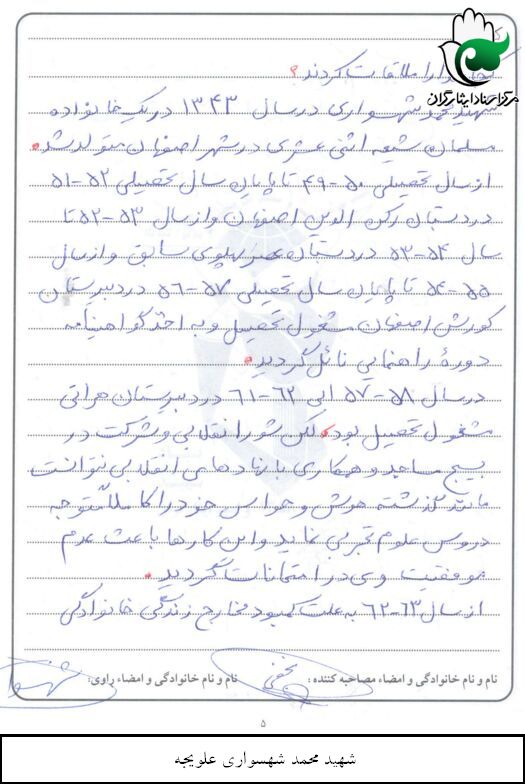 مرکز اسناد ایثارگران
را ملاقات کردند؟
شهید محمد شهسواری در سال ۱۳۴۳ در یک خانواده
مسلمان شیعه اثنی عشری در شهر اصفهان متولد شد.
از سال تحصیلی ۵۰-۴۹ تا پایان سال تحصیلی ۵۲-۵۱
در دبستان رکن الدین اصفهان و از سال ۵۳-۵۲ تا
سال ۵۴-۵۳ در دبستان عصر پهلوی سابق و از سال
۵۵-۵۴ تا پایان سال تحصیلی ۵۷-۵۶ در دبیرستان
کورش اصفهان مشغول تحصیل و به اخذ گواهینامه
دورهٔ راهنمایی نائل گردید.
در سال ۵۸-۵۷ الی ۶۲-۶۱ در دبیرستان هراتی
مشغول تحصیل بود. لکن شور انقلابی و شرکت در
بسیج مساجد و همکاری با نهادهای انقلابی نتوانست
مانند گذشته هوش و حواس خود را کاملاً متوجه
دروس علوم تجربی نماید و این کارها باعث عدم
موفقیت وی در امتحانات گردید.
از سال ۶۳-۶۲ به علت کمبود مخارج زندگی خانوادگی
نام و نام خانوادگی و امضاء مصاحبه کننده : نام و نام خانوادگی و امضاء راوی:
۵
شهید محمد شهسواری علویجه